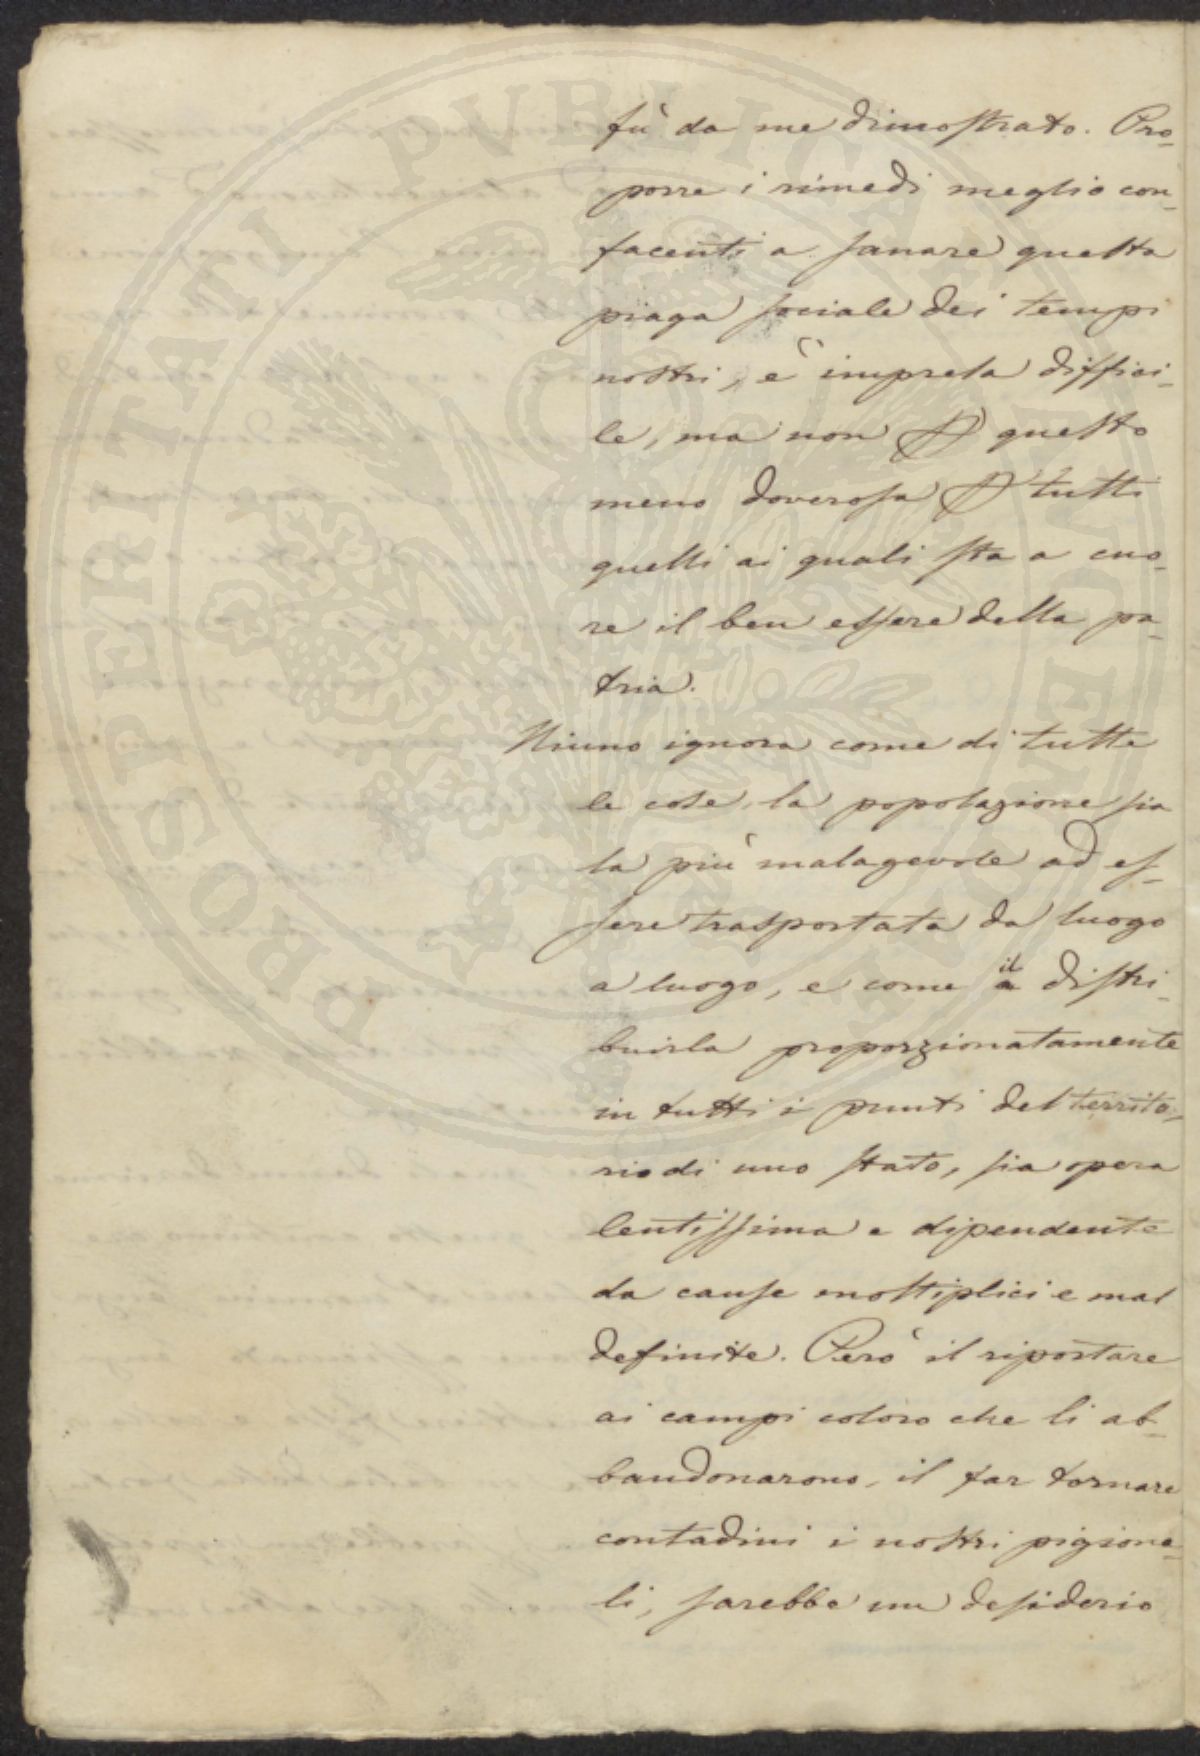 fù da me dimostrato. Pro-
porre i rimedi meglio con-
facenti a sanare questa
piaga sociale dei tempi
nostri, è impresa diffici-
le, ma non questo
meno doverosa tutti
quelli ai quali sta a cuo-
re il ben essere della pa-
tria.
Niuno ignora come di tutte
le cose, la popolazione sia
la più malagevole ad es-
sere trasportata da luogo
a luogo, e come il distri-
buirla proporzionatamente
in tutti i punti del territo-
rio di uno stato, sia opera
lentissima e dipendente
da cause moltiplici e mal
definite. Però il riportare
ai campi coloro che li ab-
bandonarono, il far tornare
contadini i nostri pigiona-
li, sarebbe un desiderio
PROSPERITATI PVBLICAE AVGENDAE